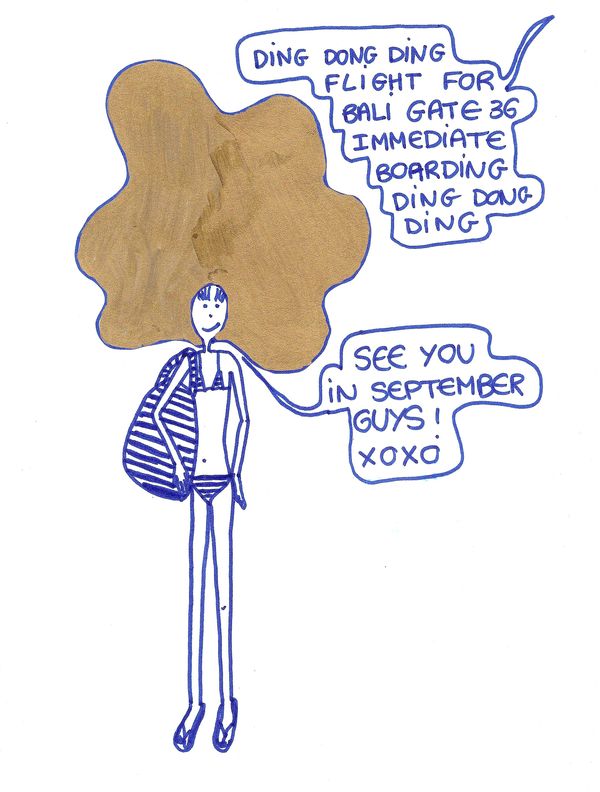 DING DONG DING
FLIGHT FOR
BALI GATE 36
IMMEDIATE
BOARDING
DING DONG
DING
SEE YOU
IN SEPTEMBER
GUYS!
XOXO